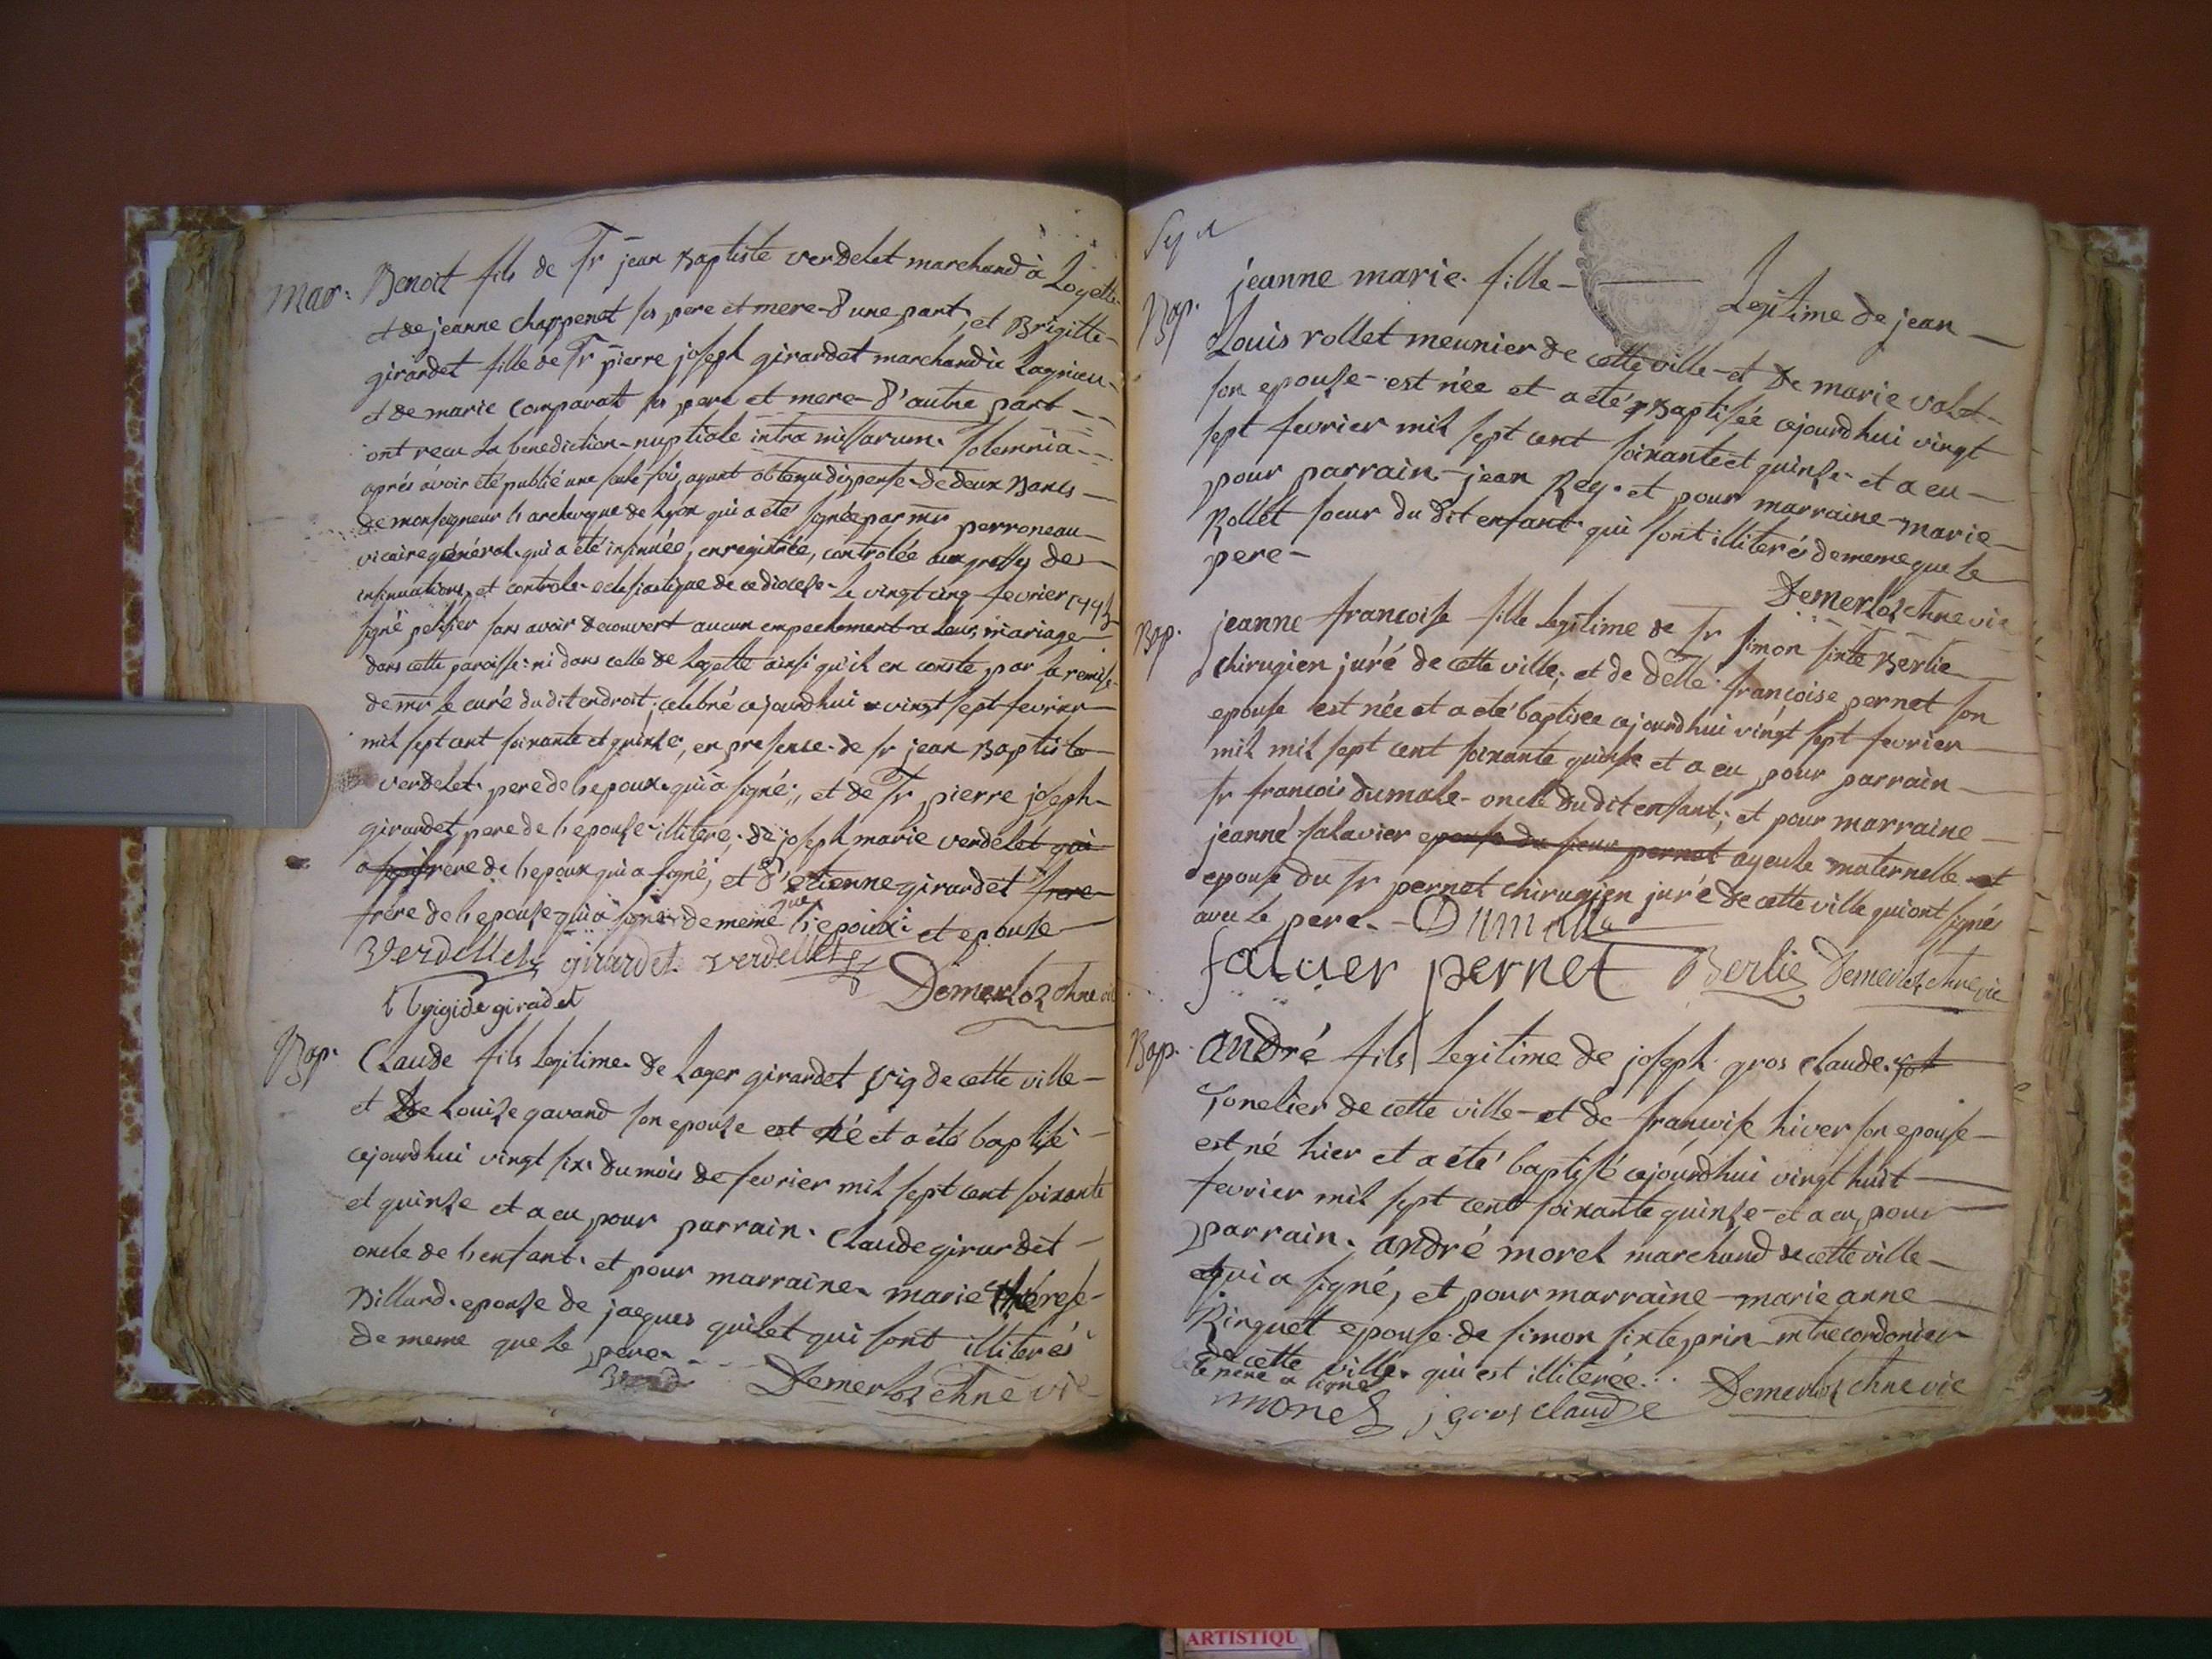 mar. Benoit fils de Sr jean Baptiste verdelet marchand à Loyette
et de jeanne chappenet ses pere et mere d'une part, et Brigitte
girardet fille de Sr pierre joseph girardet marchand à Lagnieu
et de marie comparat ses pere et mere d'autre part
ont reçu la benediction nuptiale intra missarum solemnia
aprés avoir eté publié une seule fois, ayant obtenu dispense de deux Bancs
de monseigneur l'archeveque de Lyon qui a eté signée par mr perroneau
vicaire général qui a été insinuée, enregistrée, controlée aux greffes des
insinuations, et controle eclesiastique de ce diocese le vingt cinq fevrier 1775
signé pelisier sans avoir decouvert aucun empechement a leur mariage
dans cette paroisse ni dans celle de Loyette ainsi qu'il en conste par la remise
de mr le curé du dit endroit; celebré cejourdhui vingt sept fevrier
mil sept cent soixante et quinse, en presense de sr jean Baptiste
verdelet pere de l'epoux qui a signé, et de Sr pierre joseph
girardet pere de l'epouse illiteré, de joseph marie verdelet qui
a signé frére de l'epoux qui a signé, et d'etienne girardet frere
frére de l'epouse qui a signé de meme que l'epoux et epouse
Verdellet girardet verdellet
Brigide giradet Demerloz chne vic
Bap. Claude fils legitime de Lager girardet vig de cette ville
et de Louise gavand son epouse est né et a été baptisé
cejourdhui vingt six du mois de fevrier mil sept cent soixante
et quinse et a eu pour parrain Claude girardet
oncle de l'enfant et pour marraine marie thérese
Billard epouse de jacques quilet qui sont illiterés
de meme que le pere
Demerloz chne vic
jeanne marie fille legitime de jean
Bap. Louis rollet meunier de cette ville et de marie valet
son epouse est née et a eté Baptisée cejourdhui vingt
sept fevrier mil sept cent soixante et quinse et a eu
pour parrain jean Rey et pour marraine marie
Rollet soeur du dit enfant qui sont illiterés de meme que le
pere
Demerloz chne vic
Bap. jeanne francoise fille legitime de Sr simon sixte Berlie
chirugien juré de cette ville, et de delle françoise pernet son
epouse est née et a eté baptisee cejourdhui vingt sept fevrier
mil mil sept cent soixante quinse et a eu pour parrain
sr francois dumale oncle du dit enfant; et pour marraine
jeanne salavier epouse du sieur pernet ayeule maternelle et
epouse du sr pernet chirugien juré de cette ville qui ont signés
avec le pere Dumalle
saluer pernet Berlie Demerloz chne vic
Bap. andré fils legitime de joseph gros claude
Tonelier de cette ville et de francoise hiver son epouse
est né hier et a eté baptisé cejourdhui vingt huit
fevrier mil sept cent soixante quinse et a eu pour
parrain andré morel marchand de cette ville
qui a signé, et pour marraine marie anne
Ringuet epouse de simon sixte prin mtre cordonier
de cette ville qui est illiterée
le pere a signé
morel j gros claude Demerloz chne vic
ARTISTIQU